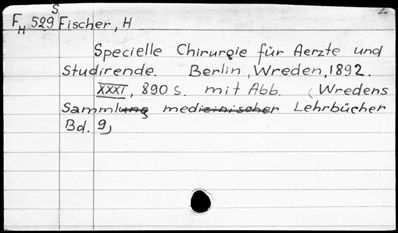 S
F_H 529 Fischer, H
Specielle Chirurgie für Aerzte und
Studirende. Berlin, Wreden, 1892.
XXXI, 890 S. mit Abb. (Wredens
Sammlung medicinischer Lehrbücher
Bd. 9)